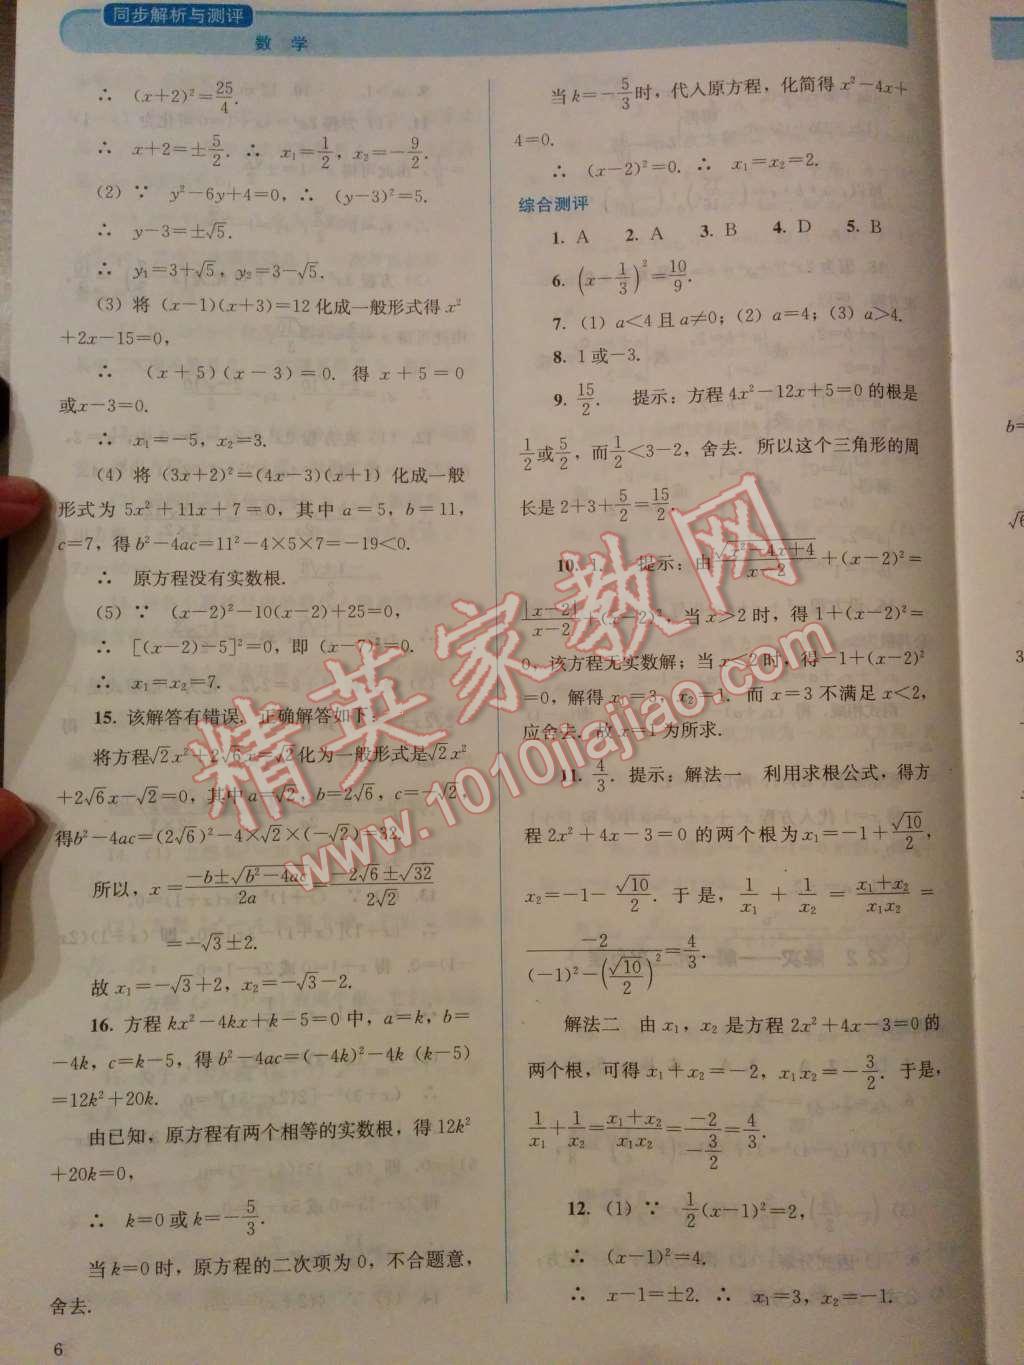 同步解析与测评
数 学
∴ (x+2)²=25/4.
∴ x+2=±5/2. ∴ x₁=1/2, x₂=-9/2.
(2) ∵ y²-6y+4=0, ∴ (y-3)²=5.
∴ y-3=±√5.
∴ y₁=3+√5, y₂=3-√5.
(3) 将 (x-1)(x+3)=12 化成一般形式得 x²
+2x-15=0,
∴ (x+5)(x-3)=0. 得 x+5=0
或x-3=0.
∴ x₁=-5, x₂=3.
(4) 将 (3x+2)²=(4x-3)(x+1) 化成一般
形式为 5x²+11x+7=0, 其中 a=5, b=11,
c=7, 得 b²-4ac=11²-4×5×7=-19<0.
∴ 原方程没有实数根.
(5) ∵ (x-2)²-10(x-2)+25=0,
∴ [(x-2)-5]²=0, 即 (x-7)²=0.
∴ x₁=x₂=7.
15. 该解答有错误. 正确解答如下:
将方程√2x²+2√6x=√2化为一般形式是√2x²
+2√6x-√2=0, 其中a=√2, b=2√6, c=-√2,
得b²-4ac=(2√6)²-4×√2×(-√2)=32.
所以, x=(-b±√(b²-4ac))/2a=(-2√6±√32)/2√2
=-√3±2.
故 x₁=-√3+2, x₂=-√3-2.
16. 方程 kx²-4kx+k-5=0 中, a=k, b=
-4k, c=k-5, 得 b²-4ac=(-4k)²-4k (k-5)
=12k²+20k.
由已知, 原方程有两个相等的实数根, 得 12k²
+20k=0,
∴ k=0 或 k=-5/3.
当 k=0 时, 原方程的二次项为 0, 不合题意,
舍去.
6
当 k=-5/3 时, 代入原方程, 化简得 x²-4x+
4=0.
∴ (x-2)²=0. ∴ x₁=x₂=2.
综合测评
1. A 2. A 3. B 4. D 5. B
6. (x-1/3)²=10/9.
7. (1) a<4 且 a≠0; (2) a=4; (3) a>4.
8. 1 或-3.
9. 15/2. 提示: 方程 4x²-12x+5=0 的根是
1/2 或 5/2, 而 1/2<3-2, 舍去. 所以这个三角形的周
长是 2+3+5/2=15/2.
10. 1. 提示: 由 √(x²-4x+4)/(x-2)+(x-2)²=
|x-2|/(x-2)+(x-2)², 当 x>2 时, 得 1+(x-2)²=
0, 该方程无实数解; 当 x<2 时, 得-1+(x-2)²
=0, 解得 x₁=3, x₂=1. 而 x=3 不满足 x<2,
应舍去. 故 x=1 为所求.
11. 4/3. 提示: 解法一 利用求根公式, 得方
程 2x²+4x-3=0 的两个根为 x₁=-1+√10/2,
x₂=-1-√10/2. 于是, 1/x₁+1/x₂=(x₁+x₂)/x₁x₂=
-2/((-1)²-(√10/2)²)=4/3.
解法二 由 x₁, x₂ 是方程 2x²+4x-3=0 的
两个根, 可得 x₁+x₂=-2, x₁x₂=-3/2. 于是,
1/x₁+1/x₂=(x₁+x₂)/x₁x₂=-2/(-3/2)=4/3.
12. (1) ∵ 1/2(x-1)²=2,
∴ (x-1)²=4.
∴ x-1=±2. ∴ x₁=3, x₂=-1.
精英家教网
www.1010jiajiao.com